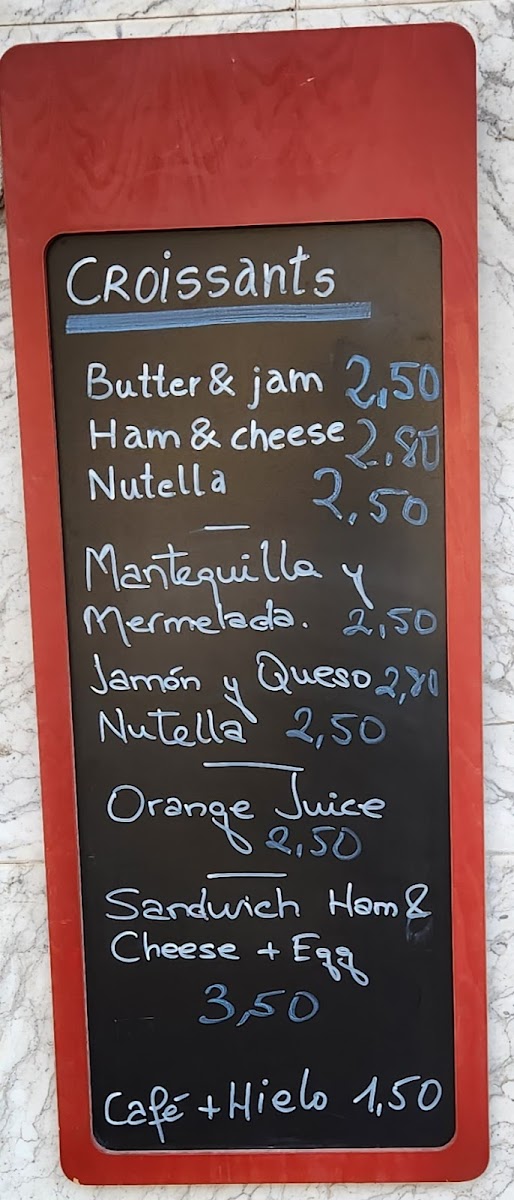 CROissants
Butter & jam 2,50
Ham & cheese 2.80
Nutella 2,50
Mantequilla y
Mermelada. 2,50
Jamón y Queso 2,80
Nutella 2,50
Orange Juice
2,50
Sandwich Ham &
Cheese + Egg
3,50
Café + Hielo 1,50